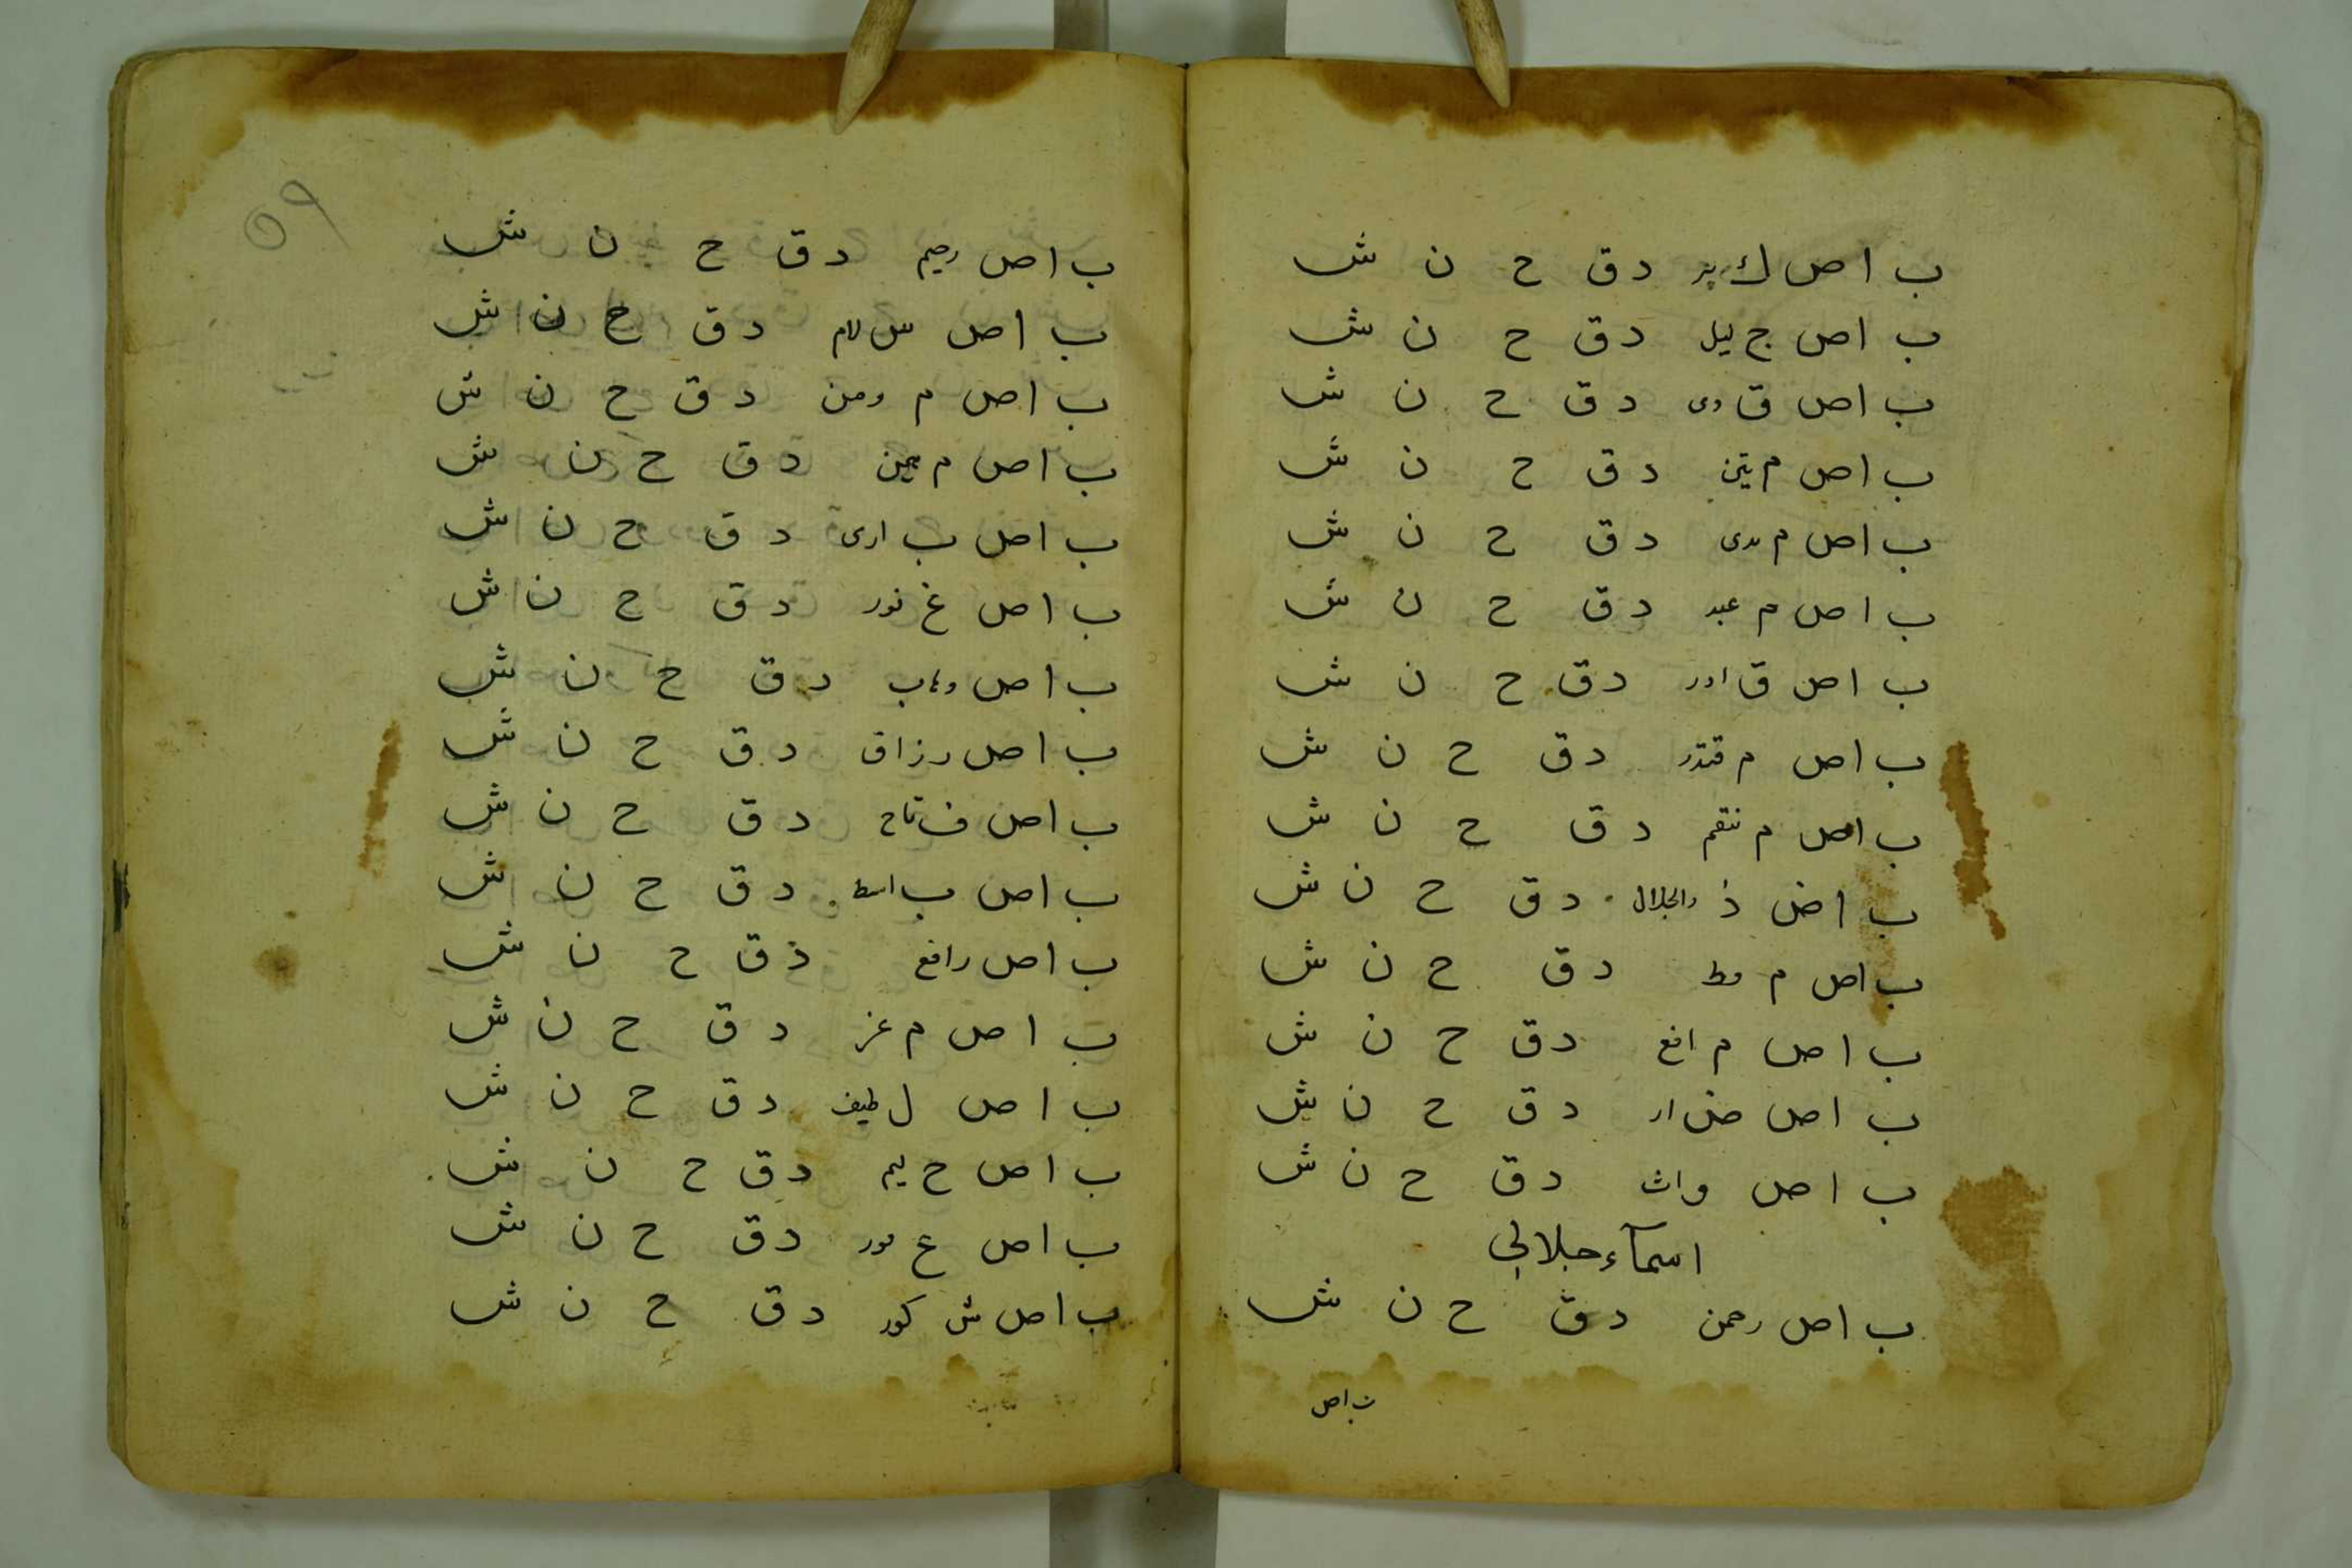 ب ا ص ك بیر د ق ح ن ش
ب ا ص ج لیل د ق ح ن ش
ب ا ص ق وی د ق ح ن ش
ب ا ص م تین د ق ح ن ش
ب ا ص م بدی د ق ح ن ش
ب ا ص م عید د ق ح ن ش
ب ا ص ق ادر د ق ح ن ش
ب ا ص م قتدر د ق ح ن ش
ب ا ص م نتقم د ق ح ن ش
ب ا ص ذ والجلال د ق ح ن ش
ب ا ص م د ق ح ن ش
ب ا ص م انع د ق ح ن ش
ب ا ص ض ار د ق ح ن ش
ب ا ص و اث د ق ح ن ش
اسمآء جلالی
ب ا ص رحمن د ق ح ن ش
ب اص
۵۹
ب ا ص رحیم د ق ح ن ش
ب ا ص س لام د ق ح ن ش
ب ا ص م ومن د ق ح ن ش
ب ا ص م هیمن د ق ح ن ش
ب ا ص ب اری د ق ح ن ش
ب ا ص غ فور د ق ح ن ش
ب ا ص وهاب د ق ح ن ش
ب ا ص رزاق د ق ح ن ش
ب ا ص ف تاح د ق ح ن ش
ب ا ص ب اسط د ق ح ن ش
ب ا ص رافع د ق ح ن ش
ب ا ص م عز د ق ح ن ش
ب ا ص ل طیف د ق ح ن ش
ب ا ص ح لیم د ق ح ن ش
ب ا ص غ فور د ق ح ن ش
ب ا ص ش کور د ق ح ن ش